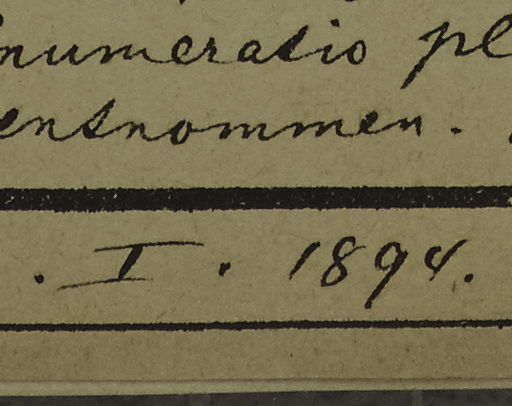 numeratio pl
entnommen.
. I . 1894.